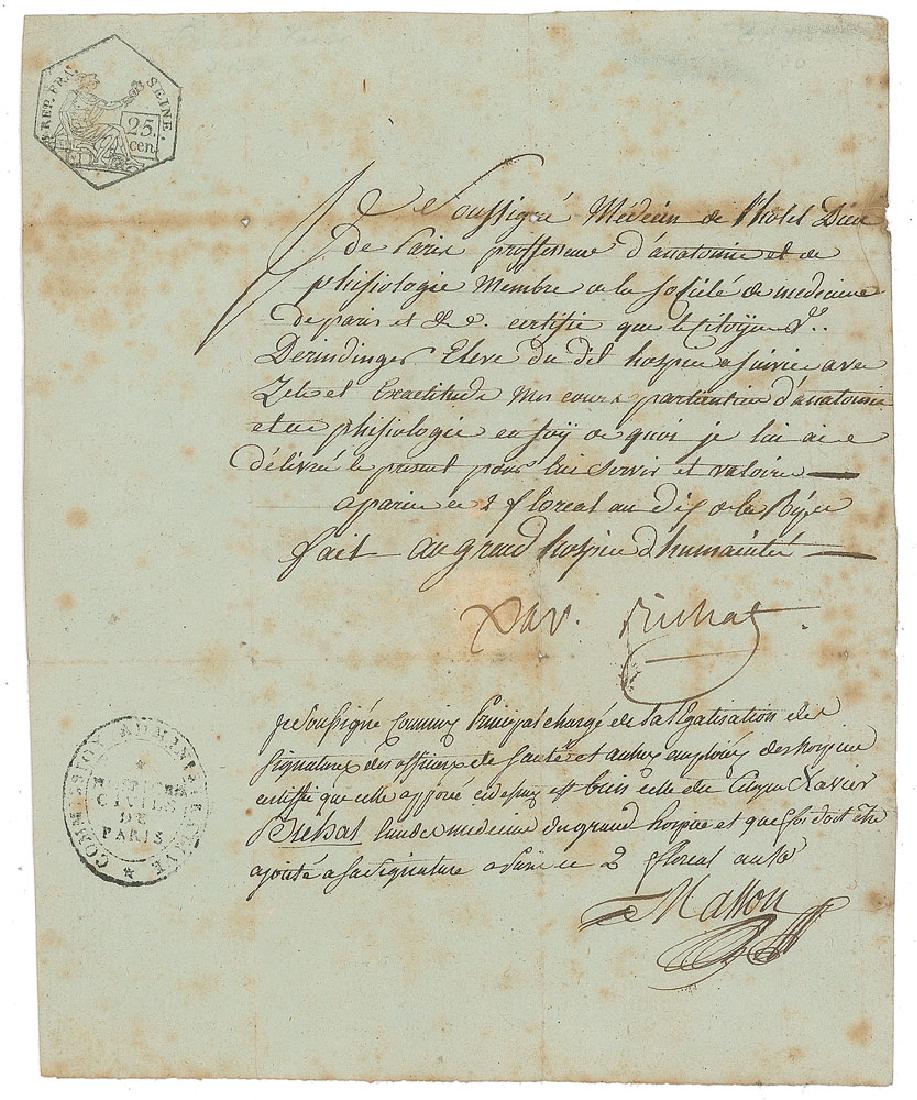 REP. FRA.
SEINE.
25.
cen.
Je Soussigné Médecin de l'hotel Dieu
de Paris proffesseur d'anatomie et de
phisiologie Membre de la Société de medecine
de paris et &c. certifie que le Citoyen
Derindinger Eleve du dit hospice a suivie avec
Zele et Exactitude Mes cours particuliers d'anatomie
et de phisiologie en foÿ de quoi je lui ai
délivré le present pour lui servir et valoire
a paris ce 2 floreal an Dix de la Rép.
fait au grand hospice d'humanité
Xav. Bichat
je Soussigné Commis Principal chargé de la légalisation des
signatures des officiers de santé et autres employés des hospices
certifie que celle apposé ci dessus est bien celle du Citoyen Xavier
Bichat l'un des medecins du grand hospice et que foi doit être
ajouté a sa signature a Paris ce 2 floreal an 10
Masson
COMMISSION ADMINISTRATIVE
HOSPICES
CIVILS
DE
PARIS